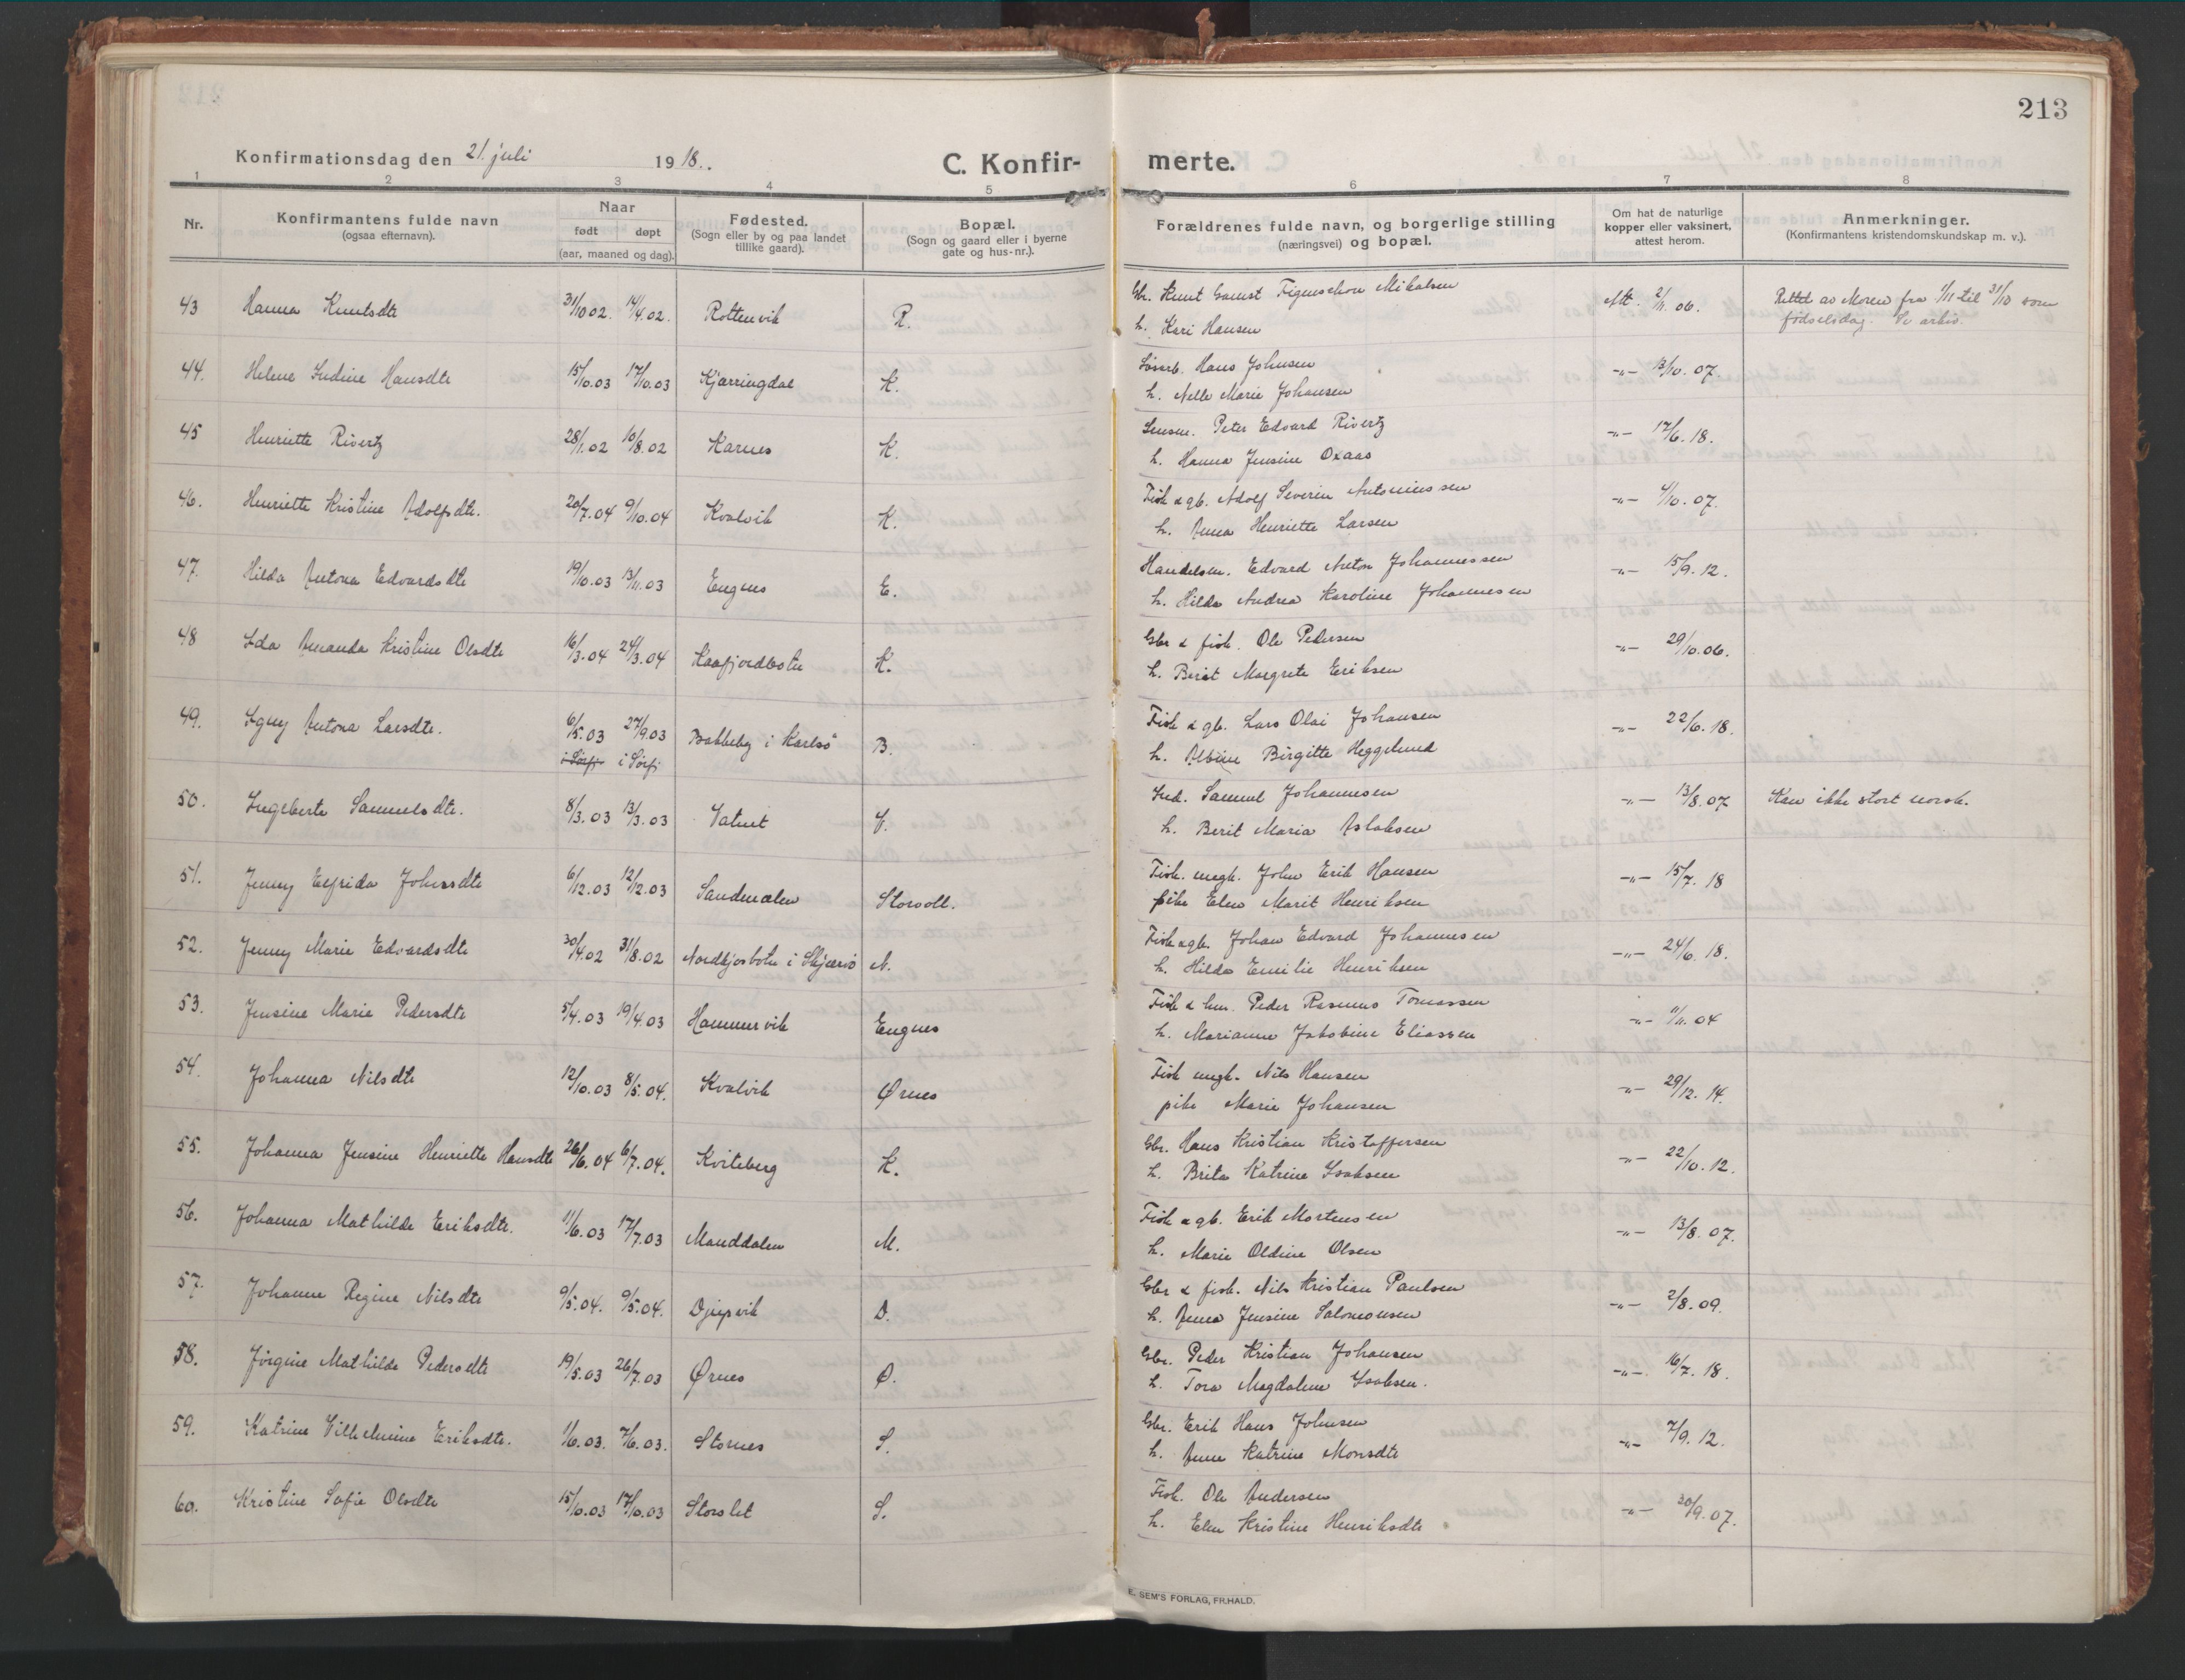 213
Konfirmationsdag den 21. juli 1918.
C. Konfir- merte.
1 2 3 4 5 6 7 8
Nr.
Konfirmantens fulde navn
(ogsaa efternavn).
Naar
født døpt
(aar, maaned og dag).
Fødested.
(Sogn eller by og paa landet
tillike gaard).
Bopæl.
(Sogn og gaard eller i byerne
gate og hus-nr.).
Forældrenes fulde navn, og borgerlige stilling
(næringsvei) og bopæl.
Om hat de naturlige
kopper eller vaksinert,
attest herom.
Anmerkninger.
(Konfirmantens kristendomskundskap m. v.).
43 Hanna Knutsdtr 31/10 02 14/4.02. Rottenvik R. Gbr. Knut Gamst Figenschou Mikalsen att. 2/11.06. Rettet av Moren fra 1/11 til 31/10 som
h. Kari Hansen fødselsdag. Se arkiv.
44. Helene Hansdtr 15/10.03 17/10.03 Kjærringdal K. Hans Johnsen -"- 13/10.07.
h. Nelle Marie Johansen
45 Henriette Rivertz 28/1.02 10/8.02 Karnes K. Lensm. Peter Edvard Rivertz -"- 17/6.18.
h. Hanna Jensine Oxaas
46. Henriette Kristine Adolfsdtr. 20/7.04 9/10.04 Kvalvik K. Fisk & gb. Adolf Severin Antoniussen -"- 4/10.07.
h. Anna Henriette Larsen
47. Hilda Antona Edvardsdtr 19/10.03 13/11.03 Engnes E. Handelsm. Edvard Anton Johannessen -"- 15/9.12.
h. Hilda Andrea Karoline Johannesen
48 Ida Amanda Kristine Olsdtr 16/3.04 24/3.04 Kaafjordbotn K. Gbr & fisk. Ole Pedersen -"- 29/10.06.
h. Berit Margrete Eriksen
49. Igny Antona Larsdtr. 6/5.03 27/9.03 Bakkeby i Karlsø B. Fisk & gb. Lars Olai Johansen -"- 22/6.18.
i Sørfj. i Sørfj h. Albine Birgitte Heggelund
50. Ingeberte Samuelsdtr. 8/3.03 13/3.03 Vatnet V. Ind. Samuel Johannesen -"- 13/8.07 Kan ikke stort norsk.
h. Berit Maria Aslaksen
51. Jenny Elfrida Johnsdtr 6/12.03 12/12.03 Sandmælen Storvoll. Fisk. ungk. John Erik Hansen -"- 15/7.18
pike Elen Marit Henriksen
52. Jenny Marie Edvardsdtr 30/4.02 31/8.02 Nordkjosbotn i Skjærvø N. Fisk & gb. Johan Edvard Johannesen -"- 24/6.18.
h. Hilda Emilie Henriksen
53. Jensine Marie Pedersdtr 5/4.03 19/4.03 Hammervik Engnes Fisk & hm. Peder Rasmus Tomassen -"- 11/11.04
h. Marianne Jakobine Eliassen
54. Johanna Nilsdtr 12/10.03 8/5.04. Kvalvik Ørnes Fisk ungk. Nils Hansen -"- 29/12.14.
pike Marie Johansen
55. Johanna Jensine Henriette Hansdtr 26/6.04 6/7.04. Kviteberg K. Gbr. Hans Kristian Kristoffersen -"- 22/10.12.
h. Brita Katrine Isaksen
56. Johanna Mathilde Eriksdtr. 11/6.03 17/7.03 Manddalen M. Fisk & gb. Erik Mortensen -"- 13/8.07.
h. Marie Oldine Olsen
57. Johanne Regine Nilsdtr 9/5.04. 9/5.04. Djupvik D. Gbr & fisk. Nils Kristian Paulsen -"- 2/8.09.
h. Anna Jensine Salomonsen
58. Jørgine Mathilde Pedersdtr 19/5.03 26/7.03 Ørnes Ø. Gbr. Peder Kristian Johansen -"- 16/7.18.
h. Tora Magdalena Isaksen.
59. Katrine Vilhelmine Eriksdtr. 1/6.03. 7/6.03. Stornes S. Gbr. Erik Hans Johnsen -"- 7/9.12.
h. Anne Katrine Monsdtr
60. Kristine Sofie Olsdtr 15/10.03 17/10.03 Storslet S. Fisk. Ole Andersen -"- 30/9.07.
h. Elen Kristine Henriksdtr
E. SEM'S FORLAG, FR.HALD.